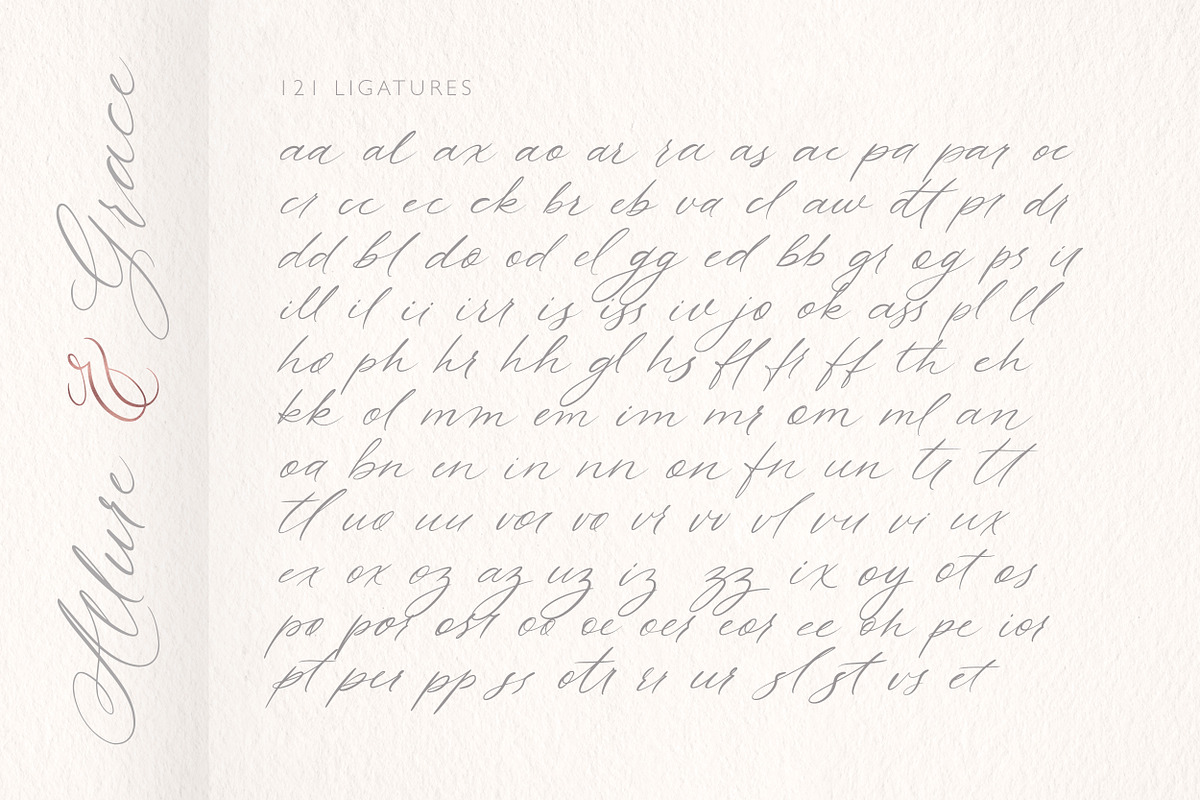 Allure & Grace
121 LIGATURES
aa al ax ao ar ra as ac pa par oc
cr cc ec ck br eb va cl aw dt pr dr
dd bl do od el gg ed bb gr og ps ir
ill il ii irr is iss iv jo ok ass pl ll
ho ph hr hh gl hs fl fr ff th eh
kk ol mm em im mr om ml an
oa bn en in nn on fn un tr tt
tl uo uu vor vo vr vv vl vu vi ux
ex ox oz az uz iz zz ix oy ot os
po por ost oo oe oer eor ee oh pe ior
pt per pp ss otr er ur sl st vs et